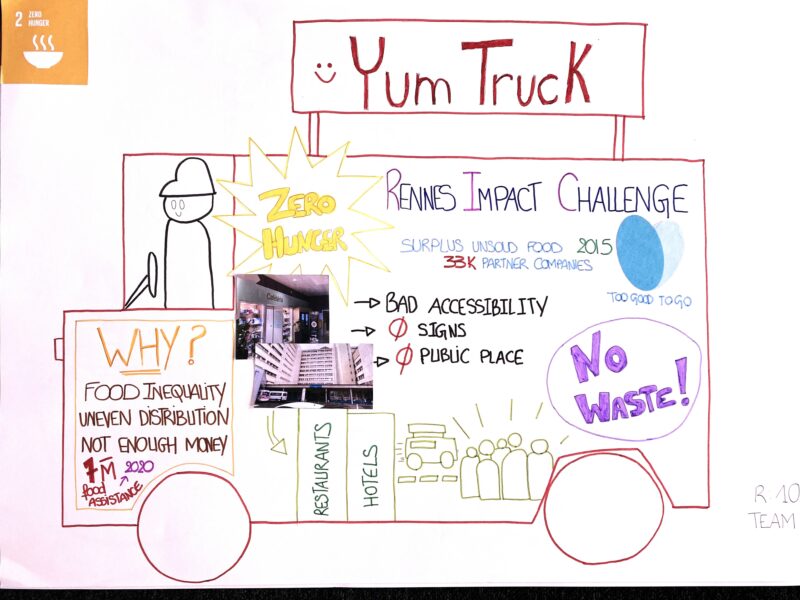 2 ZERO
HUNGER
Yum Truck
ZERO
HUNGER
RENNES IMPACT CHALLENGE
SURPLUS UNSOLD FOOD 2015
33K PARTNER COMPANIES
TOO GOOD TO GO
→ BAD ACCESSIBILITY
→ Ø SIGNS
→ Ø PUBLIC PLACE
NO
WASTE!
WHY?
FOOD INEQUALITY
UNEVEN DISTRIBUTION
NOT ENOUGH MONEY
7M 2020
food
ASSISTANCE
RESTAURANTS
HOTELS
R 10
TEAM